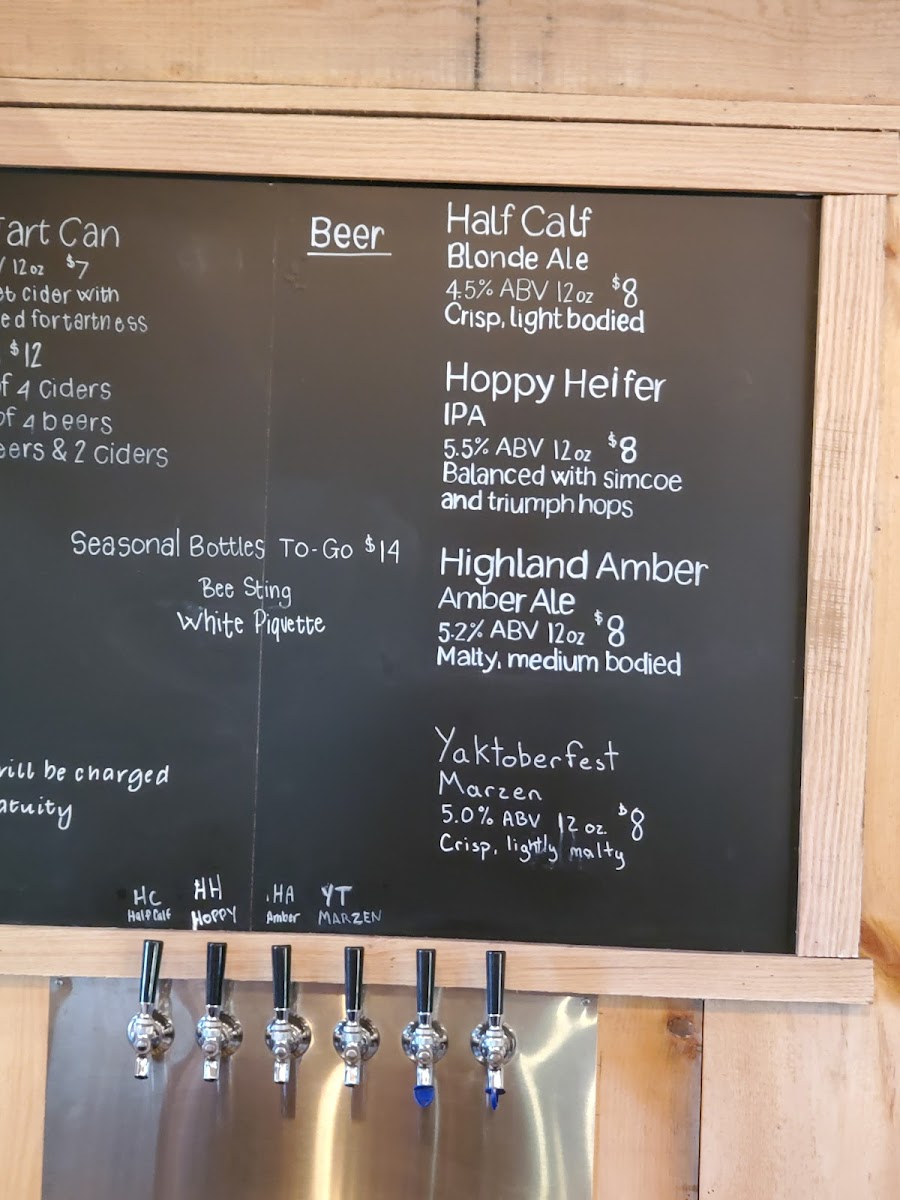 Tart Can
12oz $7
cider with
for tartness
$12
4 Ciders
of 4 beers
& 2 Ciders
Seasonal Bottles To-Go $14
Bee Sting
White Piquette
will be charged
Beer
Half Calf
Blonde Ale
4.5% ABV 12oz $8
Crisp, light bodied
Hoppy Heifer
IPA
5.5% ABV 12oz $8
Balanced with simcoe
and triumph hops
Highland Amber
Amber Ale
5.2% ABV 12oz $8
Malty, medium bodied
Yaktoberfest
Marzen
5.0% ABV 12 oz. $8
Crisp, lightly malty
HC HH HA YT
Half Calf HOPPY Amber MARZEN